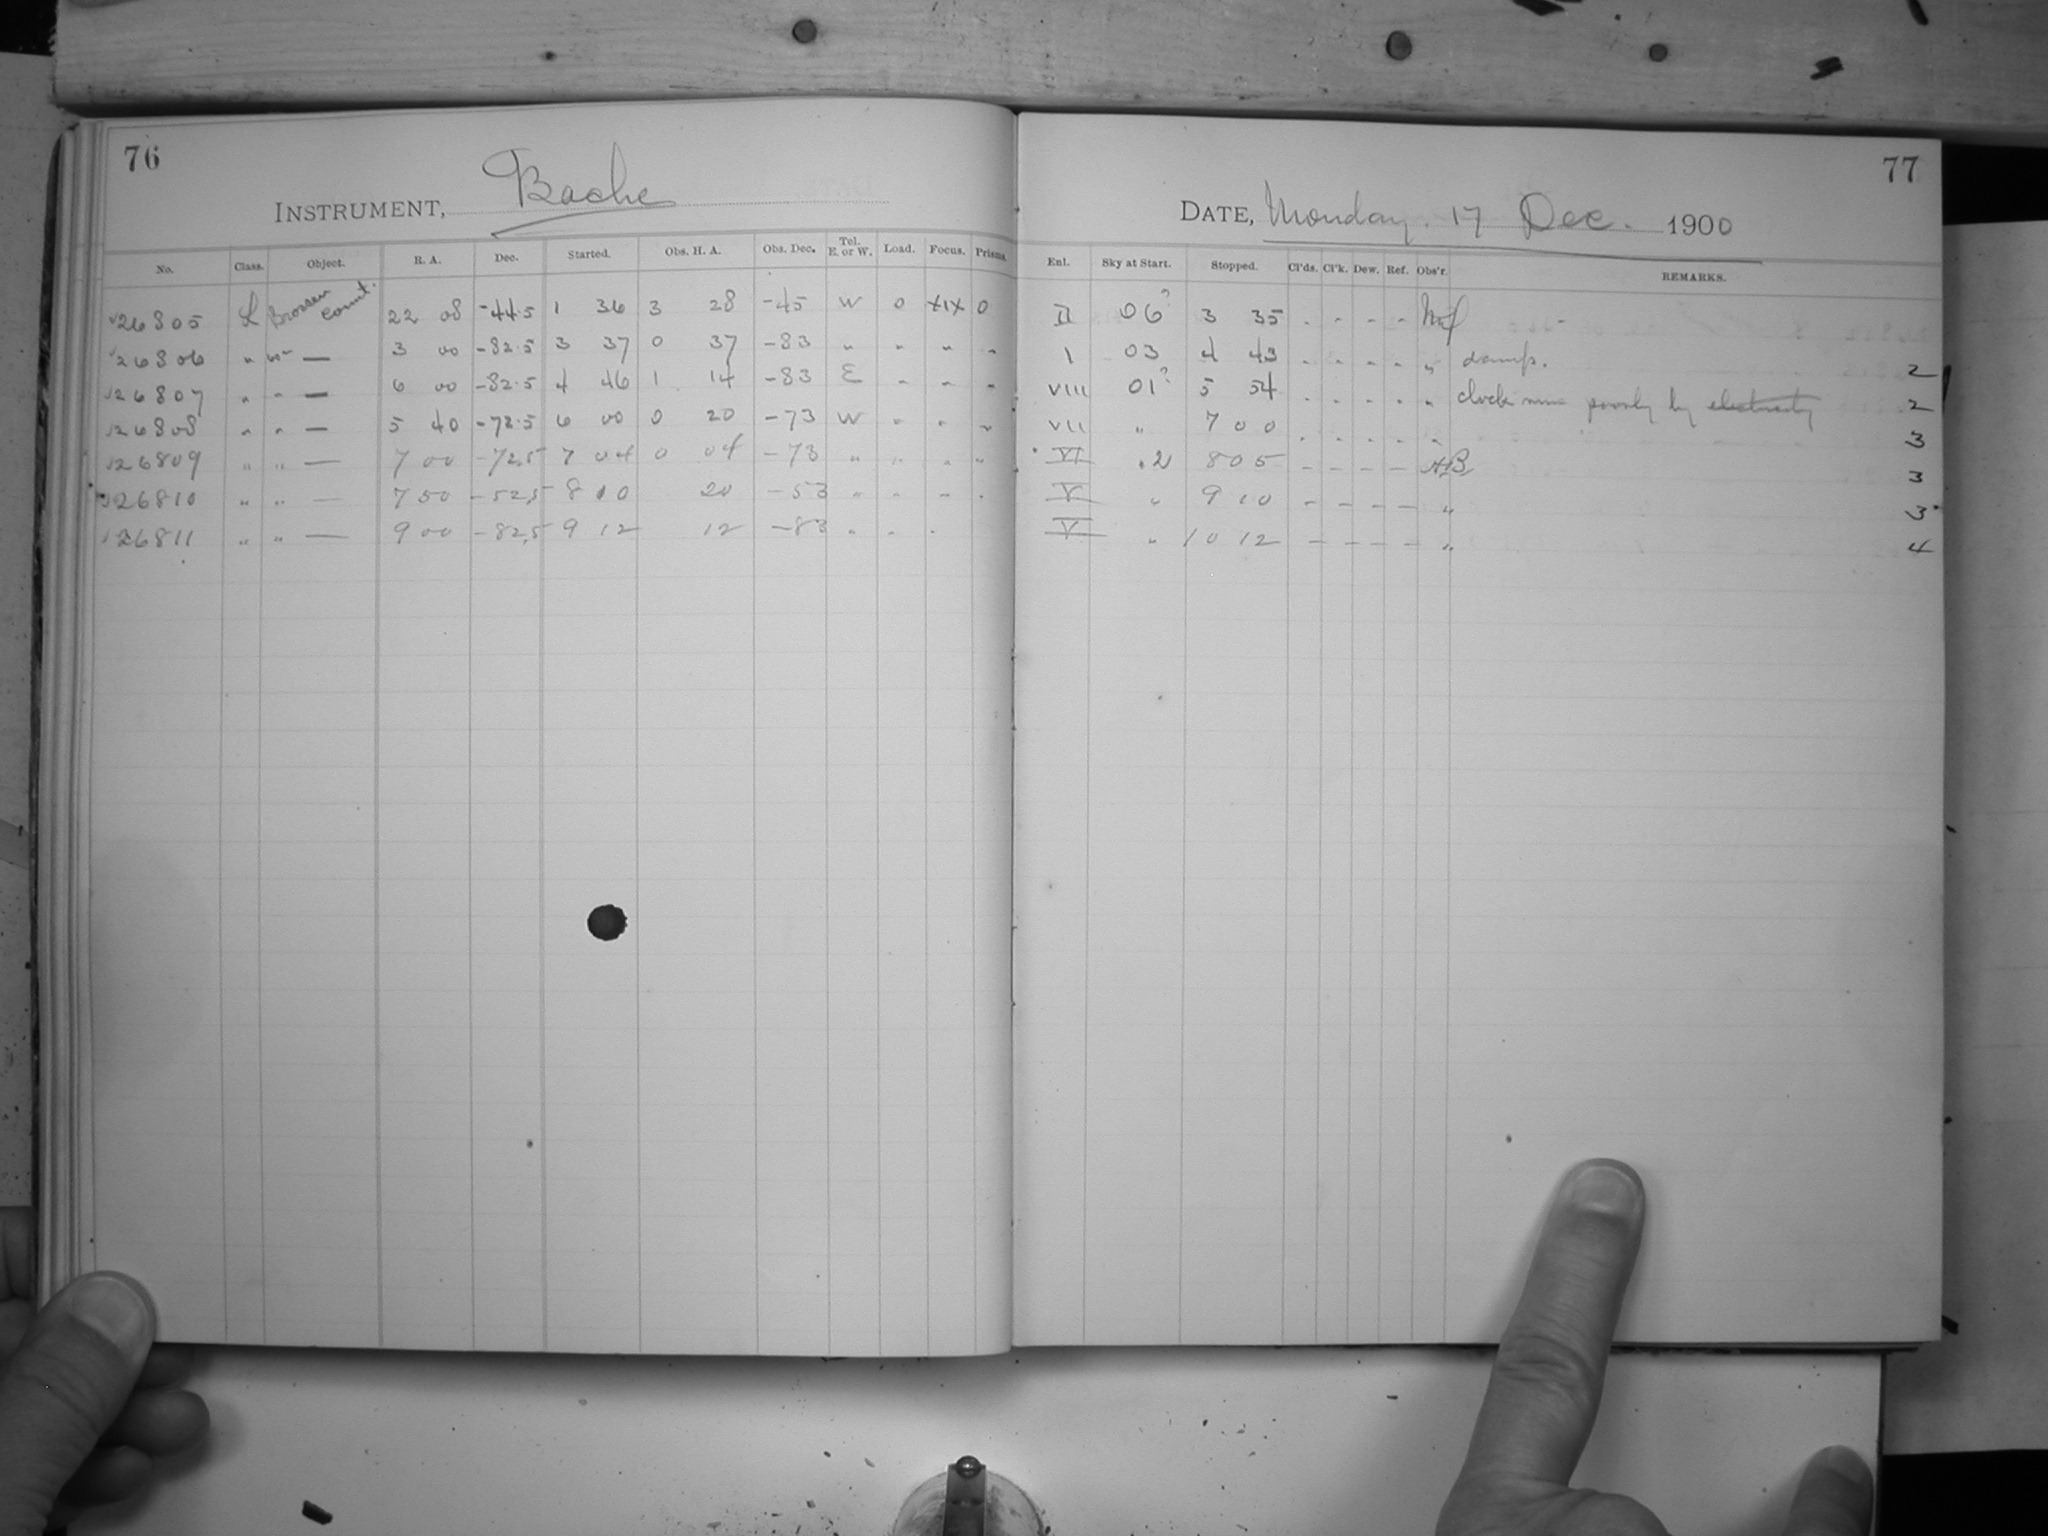 76
INSTRUMENT, Bache
No. Class. Object. R. A. Dec. Started. Obs. H. A. Obs. Dec. Tel. E. or W. Load. Focus. Prisms.
26805 L 22 08 -44.5 1 36 3 28 -45 W 0 0
26806 " — 3 00 -82.5 3 37 0 37 -83 " " " "
26807 " " — 6 00 -82.5 4 46 1 14 -83 E " " "
26808 " " — 5 40 -72.5 6 00 0 20 -73 W " " "
26809 " " — 7 00 -72.5 7 04 0 04 -73 " " " "
26810 " " — 7 50 -52.5 8 10 20 -53 " " " "
26811 " " — 9 00 -82.5 9 12 12 -83 " " "
77
DATE, Monday. 17 Dec. 1900
Enl. Sky at Start. Stopped. Cl'ds. Cl'k. Dew. Ref. Obs'r. REMARKS.
II 06? 3 35 - - - -
I 03 4 43 - - - - " damp. 2
VIII 01? 5 54 - - - - " clock runs poorly by electricity 2
VII " 7 00 - - - - " 3
VI .2 8 05 - - - - 3
V " 9 10 - - - - " 3
V " 10 12 - - - - " 4